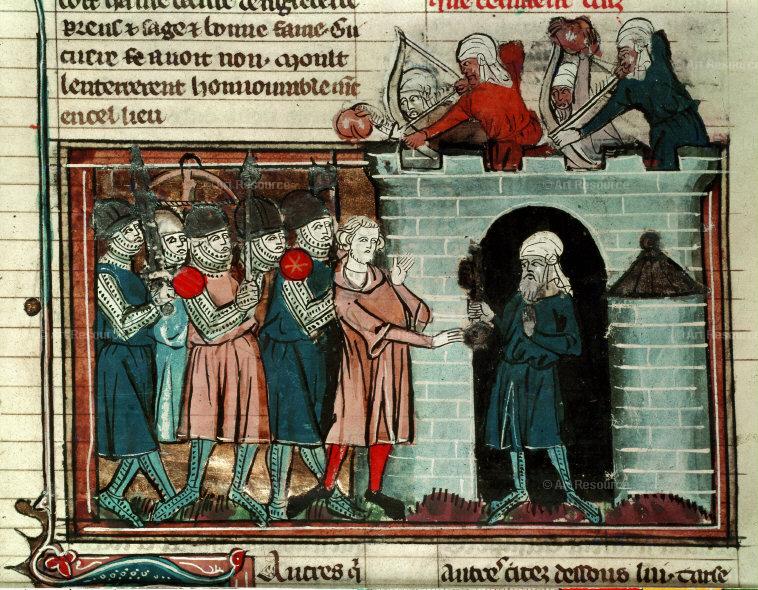 preus ⁊ sage ⁊ bonne fame. Gu
tuere se auoit non. moult
lenterrerent honnourablemt
en cel lieu
© Art Resource
© Art Resource
© Art Resource
© Art Resource
© Art Resource
© Art Resource
Autres q
autres citez dessous lui. tarse